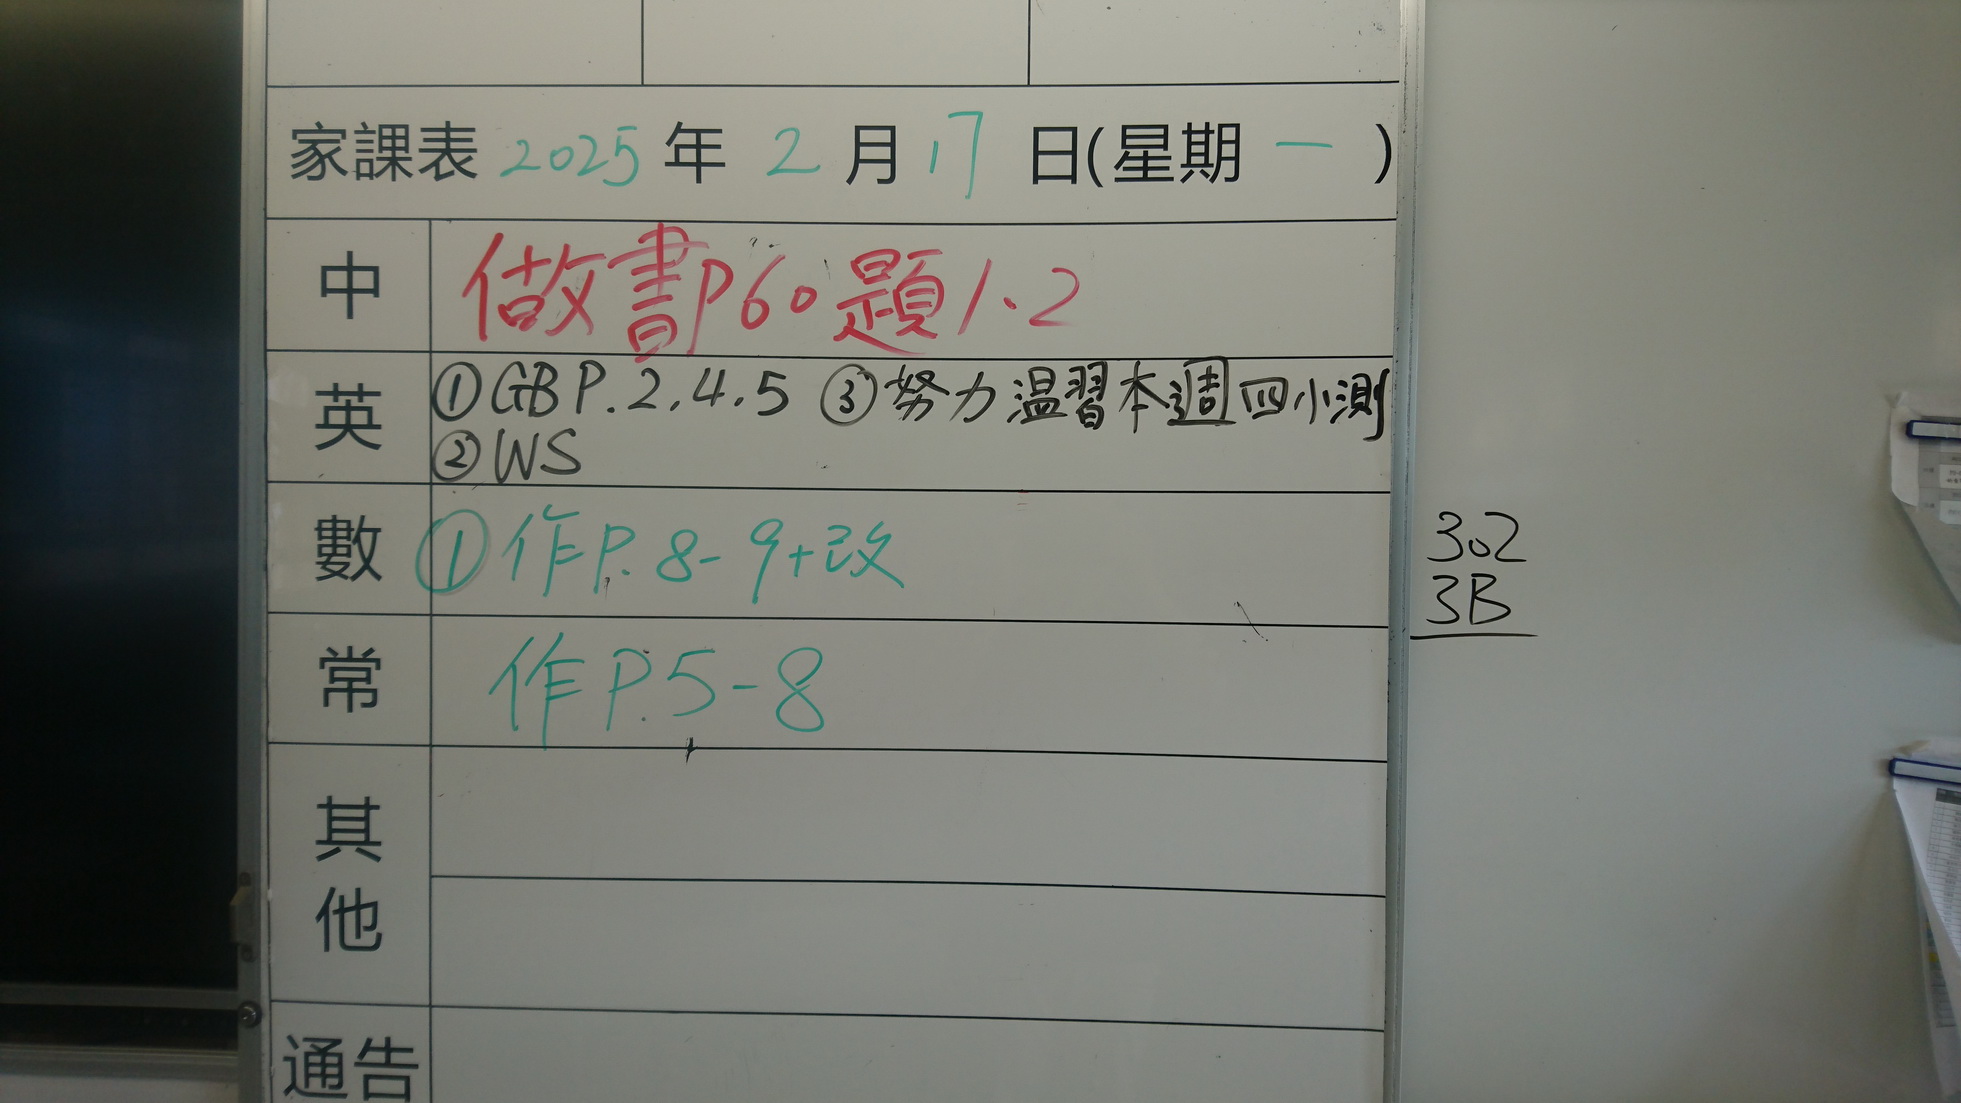 家課表 2025 年 2 月 17 日(星期 一 )
中 做書P60題1.2
英 ①GB P.2,4,5 ③努力溫習本週四小測
②WS
數 ①作P.8-9+改
常 作P.5-8
其他
通告
302
3B